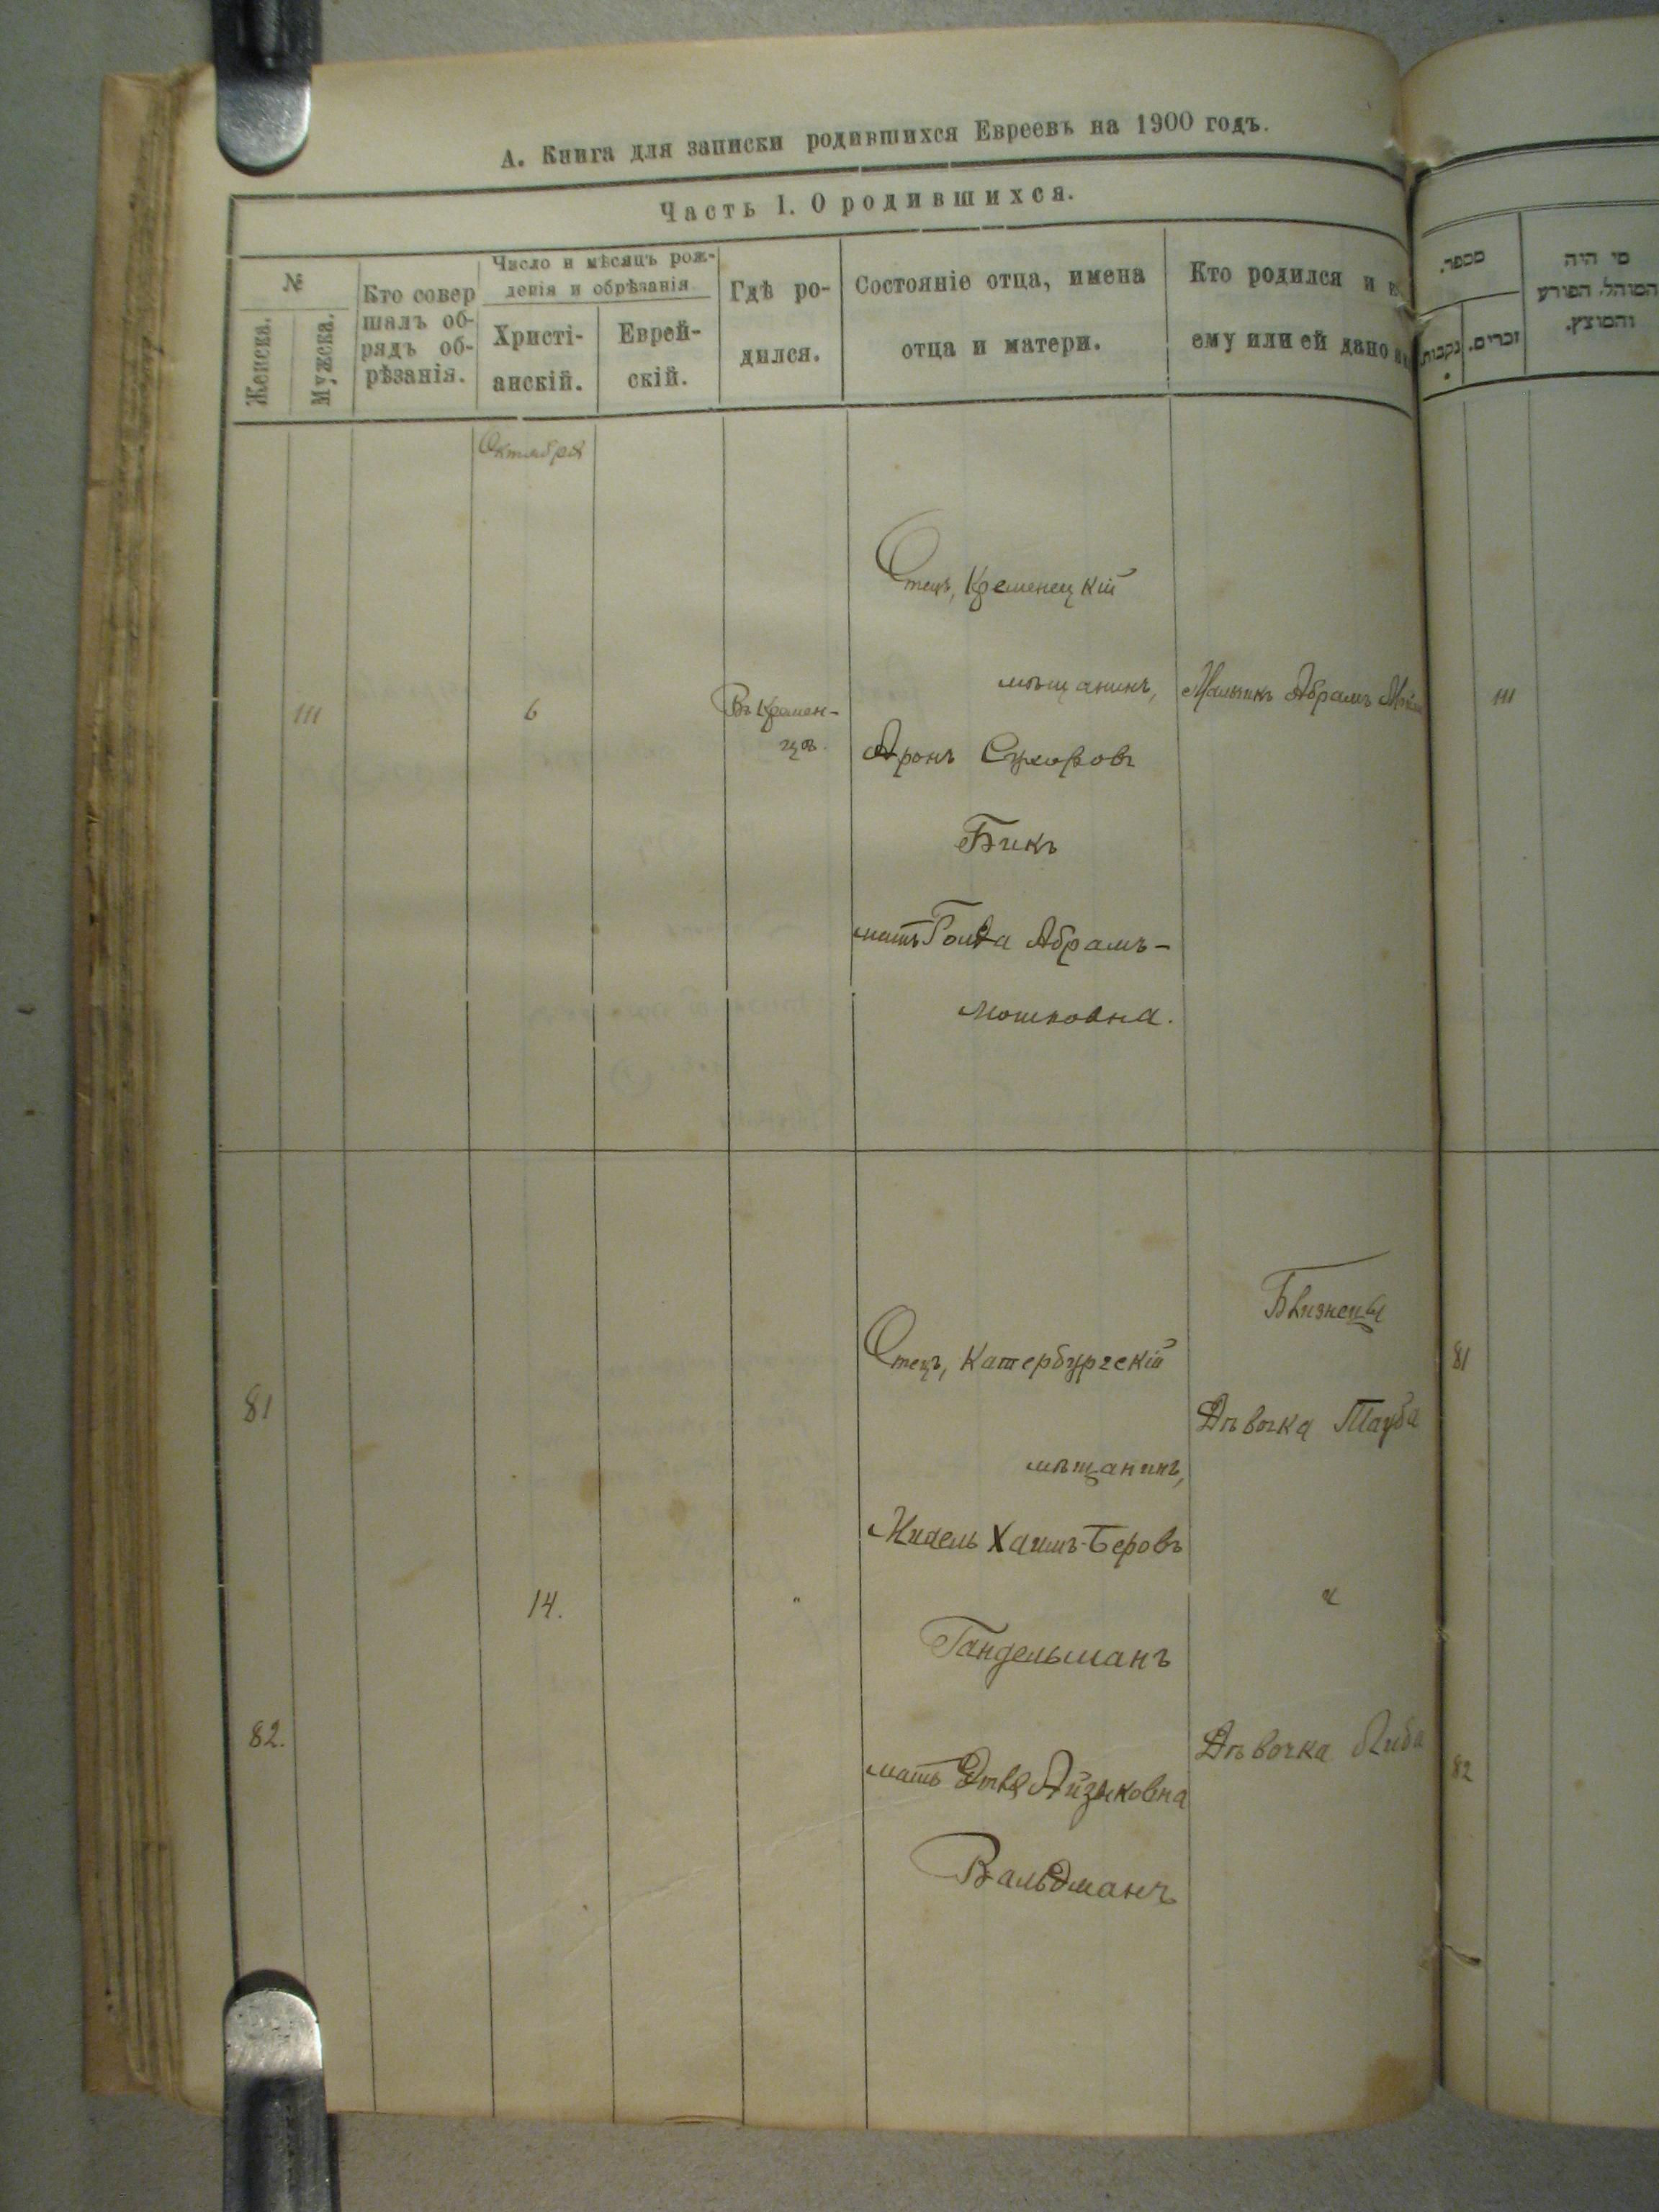 А. Книга для записки родившихся Евреевъ на 1900 годъ.
Часть I. О родившихся.
№
Женска.
Мужска.
Кто совер
шалъ об-
рядъ об-
рѣзанія.
Число и мѣсяцъ рож-
денія и обрѣзанія
Христі-
анскій.
Еврей-
скій.
Гдѣ ро-
дился.
Состояніе отца, имена
отца и матери.
Кто родился и
ему или ей дано
מספר.
נקבות.
זכרים.
מי היה
המוהל, הפורע
והמוצץ.
Октября
111
6
Въ Кремен-
цѣ.
Отецъ, Кременецкій
мѣщанинъ,
Аронъ
Бикъ
мать Абрамъ-
Мошковна.
Мальчикъ Абрамъ
111
81
82.
14.
"
Отецъ, Катербургскій
мѣщанинъ,
Хаимъ-Беровъ
Гандельманъ
мать Айзиковна
Вальдманъ
Близнецы
Дѣвочка Тауба
и
Дѣвочка Либа
81
82